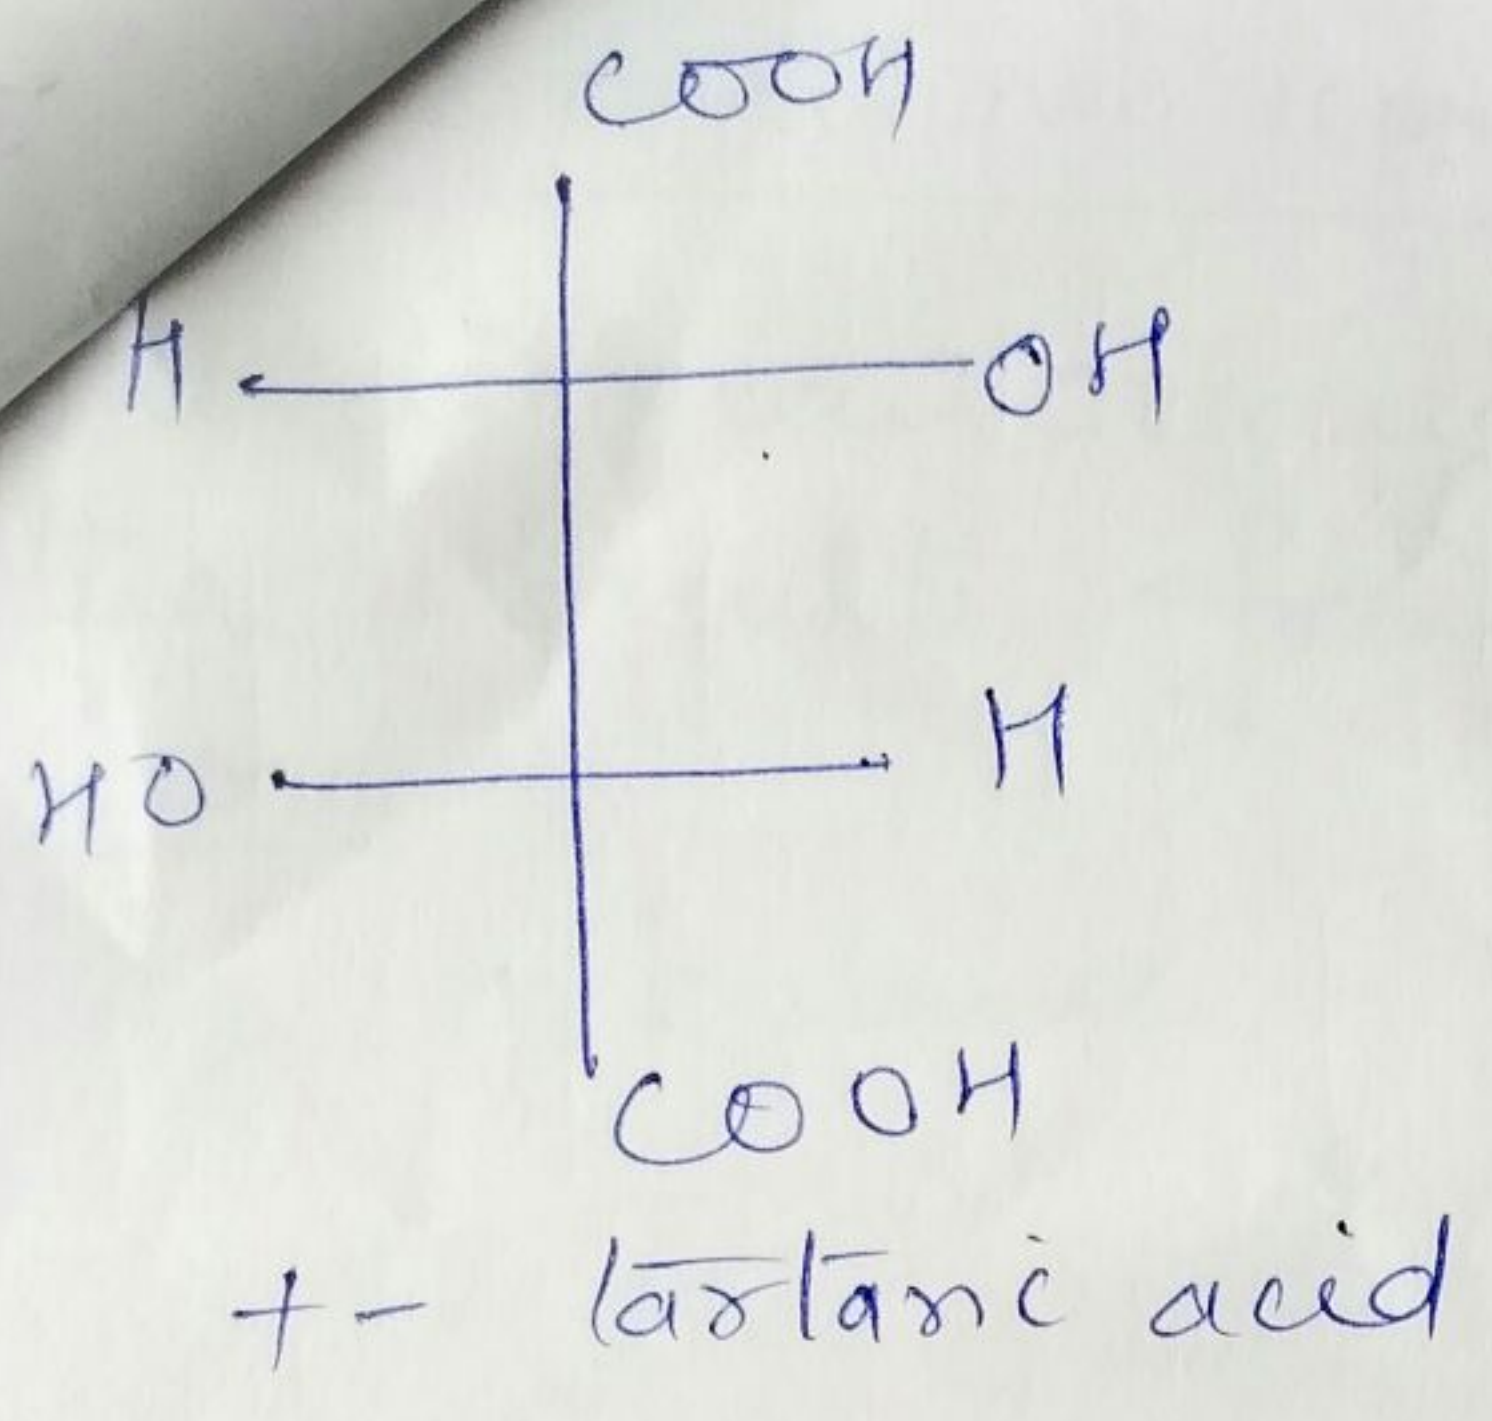 COOH
H OH
HO H
COOH
+- tartaric acid